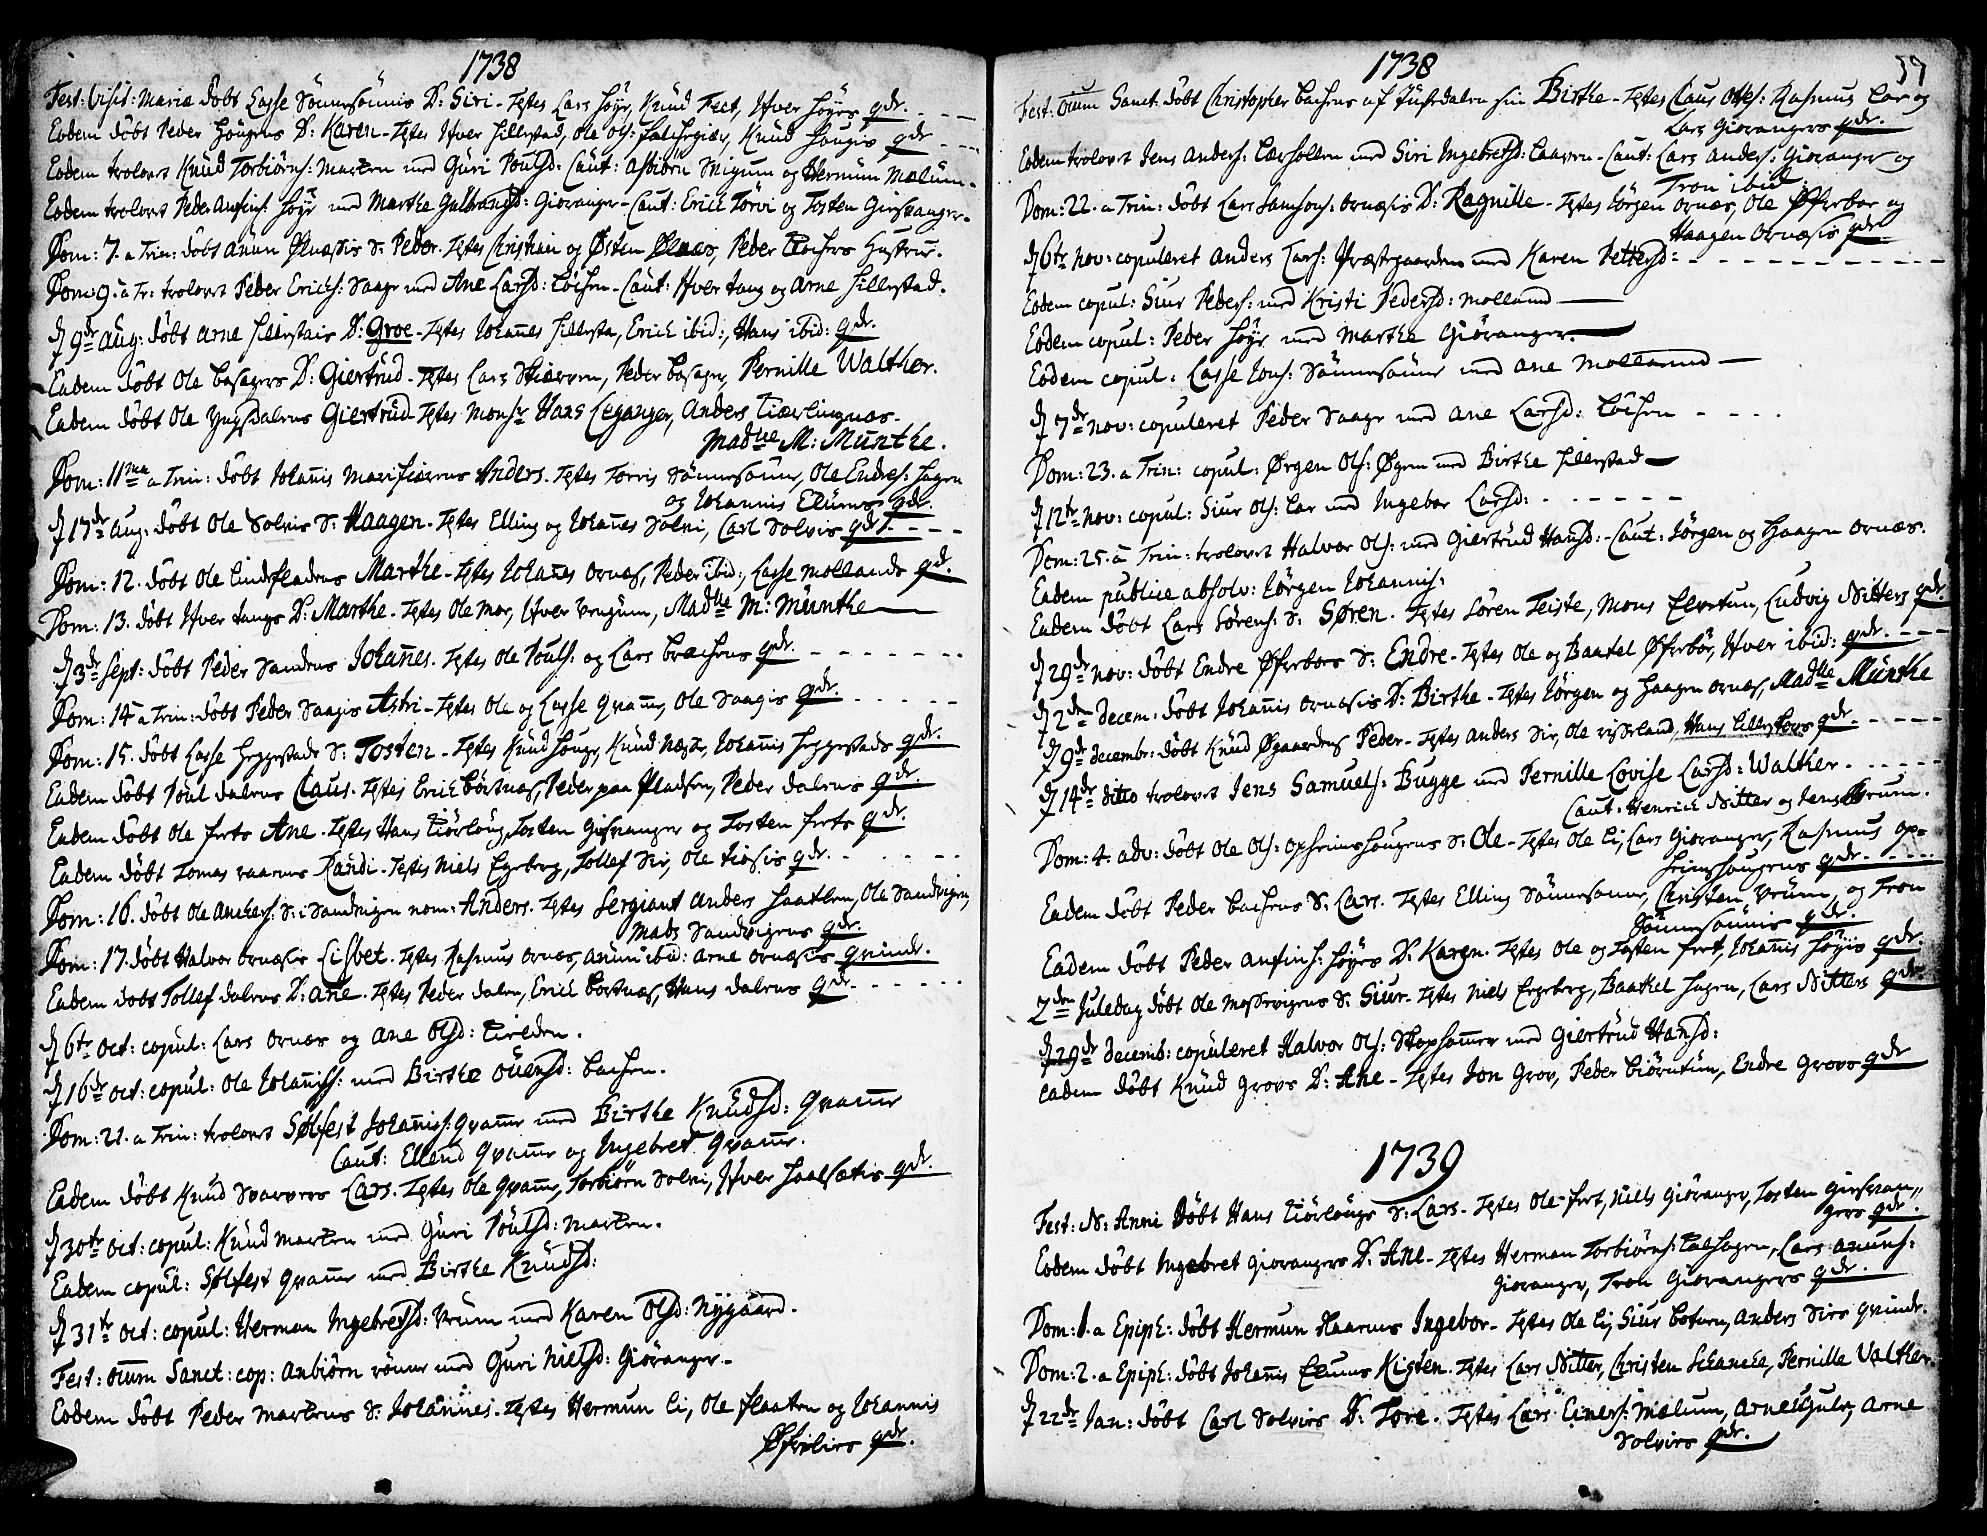 1738
Fest: Visit: Mariæ döbt Lasse Sönnesönnis D: Siri - Testes Lars Höye, Knud Fect, Hver Höyes qdr.
Eodem döbt Peder Hougens D: Karen - Testes Hver Hillestad, Ole Ols: Knud Hougis qdr
Eodem trolovet Knud Torbiörns: Marken med Guri Poulsd: Caut: Asbiörn Migum og Hermun Mælum.
Eodem trolovet Peder Anfins: Höye med Marthe Gulbrandsd: Gioranger - Caut: Erick Törvi og Tosten Girsranger.
Dom: 7. a Trin: döbt Anun Ølnæsis S: Peder. Testes Christian og Østen Ølnæs, Peder Hustrue.
Dom: 9. a Tr: trolovet Peder Ericks: Saage med Ane Larsd: Löchen - Caut: Hver Tang og Arne Hillestad.
d 9de Aug: döbt Arne Hillestais D: Groe - Testes Johannes Hillesta, Erick ibid:, Hans ibid: qdr.
Eadem döbt Ole D: Giertrud - Testes Lars Skiærven, Peder Pernille Walther.
Eadem döbt Ole Yngsdalens Giertrud - Testes Monsr Hans Leganger, Anders Tiærlingnæs.
Madlle M: Munthe.
Dom: 11ma a Trin: döbt Johannis Marifiærens Anders. Testes Torris Sönnesönn, Ole Endres: Hagen
og Johannis Elûmes qdr.
d 17de Aug: döbt Ole Solvis S: Haagen - Testes Elling og Johannes Solvi, Carl Solvis qdr.
Dom: 12. döbt Ole Lindefladens Marthe - Testes Johannes Ornæs, Peder ibid:, Lasse Mollands qd.
Dom: 13. döbt Hver Tangs D: Marthe - Testes Ole Mor, Hver Madlle M: Munthe
d 3de Sept: döbt Peder Sandens Johannes. Testes Ole Pouls: og Lars qdr.
Dom: 14 a Trin: döbt Peder Saagis Astri - Testes Ole og Lasse Qvam, Ole Saagis qdr.
Dom: 15. döbt Lasse Heggestads S: Tosten - Testes Knud Houge, Knud Næss, Johannis Heggestads qdr.
Eadem döbt Poul Dalens Claus. Testes Erick Börtnæs, Peder paa Pladsen, Peder Dalens qdr.
Eadem döbt Ole Fets Ane - Testes Hans Kiörloug, Tosten Gisranger og Tosten Fets qdr.
Eadem döbt Tomas Randi - Testes Niels Egeberg, Tollef Sir, Ole qdr.
Dom: 16. döbt Ole Anders: S: i Sandvigen nom: Anders. Testes Sergiant Anders Haatlen, Ole Sandvigen,
Mads Sandvigens qdr.
Dom: 17. döbt Halvor Ornæsis Lisbet - Testes Rasmus Ornæs, Anun ibid: Arne Ornæsis qvinde.
Eadem döbt Tollef Dalens D: Ane. Testes Peder Dalen, Erick Börtnæs, Hans Dalens qdr.
d 6te Oct: copul: Lars Ornæs og Ane Olsd:
d 16de Oct: copul: Ole Johanniss: med Birthe Ouensd: Bachen.
Dom: 21. a Trin: trolovet Sølfest Johannis: Qvamme med Birthe Knudsd: Qvamme
Caut: Ellend Qvamme og Ingebret Qvamme.
Eadem döbt Knud Svarvers Lars. Testes Ole Qvam, Torbiörn Solvi, Hver qdr.
d 30te Oct: copul: Knud Marken med Guri Poulsd: Marken.
Eadem copul: Sølfest Qvamme med Birthe Knudsd:
d 31te Oct: copul: Herman Ingebretsd: Urum med Karen Olsd: Nygaard.
Fest: oium Sanct: cop: Anbiörn röneue med Guri Nielsd: Giöranger.
Eodem döbt Peder Markens S: Johannes. Testes Hermun Li, Ole Flaaten og Johannis
qdr.
1738
Fest: oium Sanct: döbt Christopher Bachens af Justedalen sin Birthe - Testes Claus Ottes: Rasmus Lar og
Lars Giorangers qdr.
Eodem trolovet Jens Anders: med Siri Ingebretsd: - Caut: Lars Anders: Gioranger og
Tron ibid
Dom: 22. a Trin: döbt Lars Samsons: Ornæsis D: Ragnille - Testes Jörgen Ornæs, Ole Øferbor og
Haagen Ornæsis qdr.
d 6te Nov: copuleret Anders Lars: Præstegaarden med Karen Pettersd:
Eodem copul: Siur Peders: med Kristi Pedersd: Molland
Eodem copul: Peder Höye med Marthe Giöranger.
Eodem copul: Lasse Jons: Sönnesönne med Ane Molland
d 7de Nov: copuleret Peder Saage med Ane Larsd: Löchen
Dom: 23. a Trin: copul: Ørgen Ols: Øgren med Birthe Hillestad
d 12te Nov: copul: Siur Ols: Lar med Ingebor Larsd:
Dom: 25. a Trin: trolovet Halvor Ols: med Giertrud Hansd: - Caut: Jörgen og Haagen Ornæs.
Eadem publice absolv: Jörgen Johannis:
Eadem döbt Lars Sörens: S: Søren. Testes Sören Teiste, Mons Elvetun, Ludvig Nitters qdr.
d 29de Nov: döbt Endre Øferbors S: Endre - Testes Ole og Baatel Øferbör, Hver ibid: qdr.
d 2den Decem: döbt Johannis Ornæsis D: Birthe - Testes Jörgen og Haagen Ornæs, Madlle Munthe
d 9de Decembr: döbt Knud Øgaardens Peder - Testes Anders Sir, Ole Hans Lillestoers qdr.
d 14de Ditto trolovet Jens Samuels: Bugge med Pernille Lovise Larsd: Walther.
Caut: Henrich Nitter og Jens Krum.
Dom: 4. adv: döbt Ole Ols: Opheimshougens S: Ole - Testes Ole Li, Lars Gioranger, Rasmus Op-
heimshougens qdr.
Eadem döbt Peder Bachens S: Lars. Testes Elling Sönnesönne, Christen Urum, og Tron
Sönnesönnis qdr.
Eadem döbt Peder Anfins: Höyes D: Karen. Testes Ole og Tosten Fet, Johannis Höyis qdr.
2den Juledag döbt Ole Mossevigens S: Siur - Testes Niels Egeberg, Baatel Hagen, Lars Nitters qdr.
d 29de Decemb: copuleret Halvor Ols: med Giertrud Hansd:
Eadem döbt Knud Grovs D: Ane - Testes Jon Grov, Peder Biörntun, Endre Grovs qdr
1739
Fest: N: Anni döbt Hans Kiörlougs S: Lars. Testes Ole Fet, Niels Giöranger, Tosten Girsran,,
gers qdr.
Eodem döbt Ingebret Giorangers D: Ane - Testes Herman Torbiörns: Lars Anuns:
Gioranger, Tron Giorangers qdr.
Dom: 1. a Epiph: döbt Hermun Ingebor - Testes Ole Li, Siur Boturn, Anders Sirs qvinde.
Dom: 2. a Epiph: döbt Johannis Elums Kirsten. Testes Lars Nitter, Christen Schancke, Pernille Valther.
d 22de Jan: döbt Carl Solvirs D: Tore. Testes Lars Einers: Mælum, Arne Arne
Solvirs qdr.